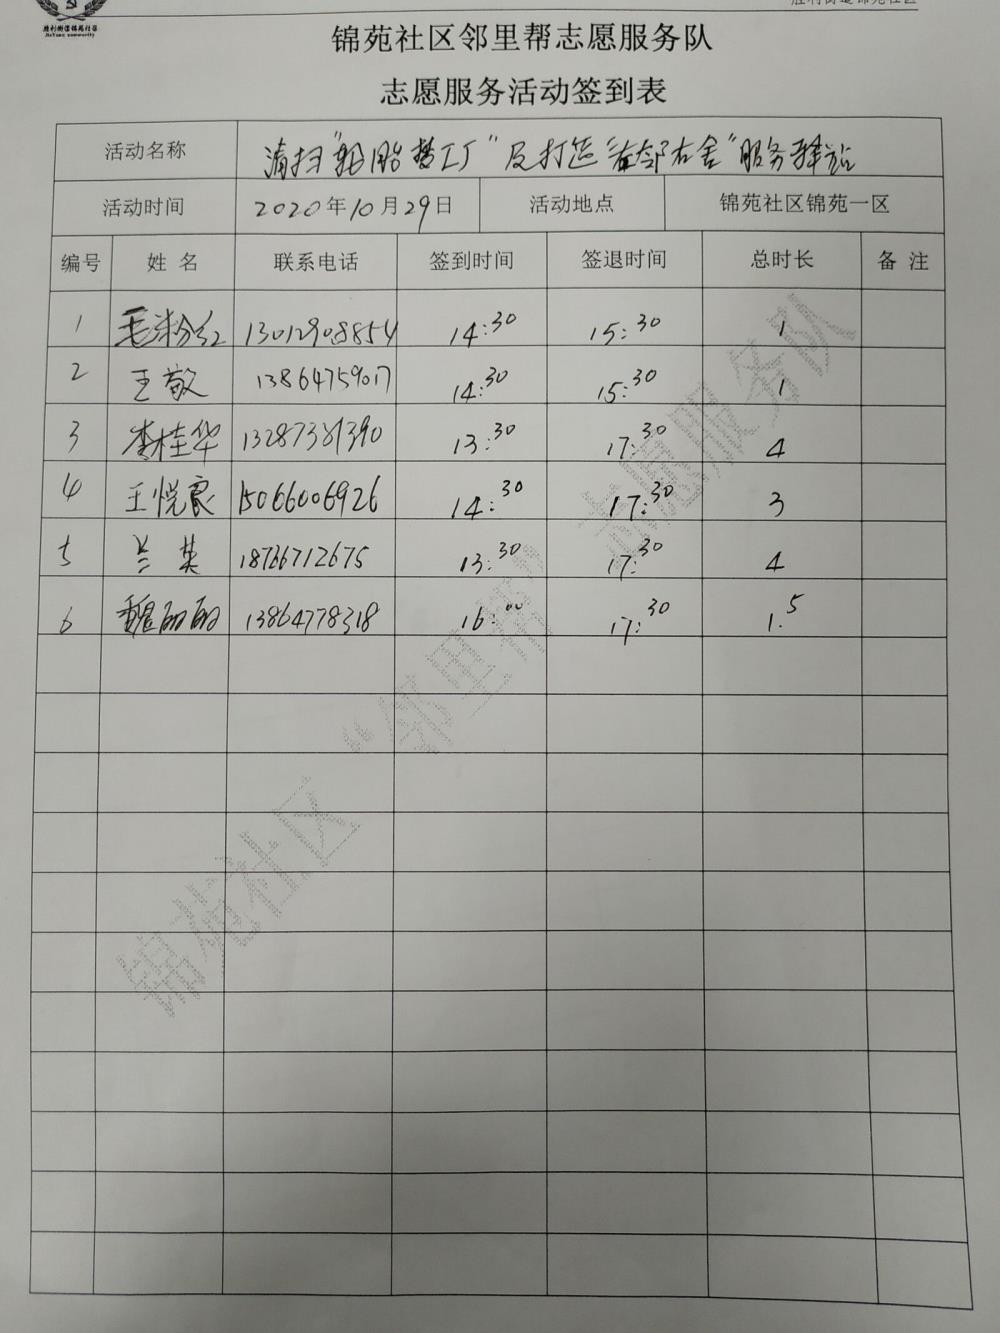 胜利街道锦苑社区
胜利街道锦苑社区
JinYuan community
锦苑社区邻里帮志愿服务队
志愿服务活动签到表
活动名称 清扫"轮胎梦工厂"及打造"左邻右舍"服务驿站
活动时间 2020年10月29日 活动地点 锦苑社区锦苑一区
编号 姓名 联系电话 签到时间 签退时间 总时长 备注
1 毛粉红 13012908854 14:30 15:30 1
2 王敬 13864759017 14:30 15:30 1
3 李桂华 13287381390 13:30 17:30 4
4 王悦良 15066006926 14:30 17:30 3
5 兰英 18766712675 13:30 17:30 4
6 魏丽丽 13864778318 16:00 17:30 1.5
锦苑社区"邻里帮"志愿服务队